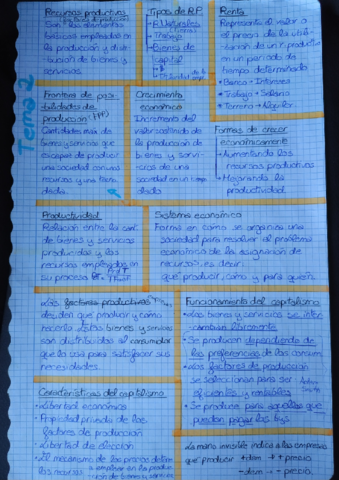 Tema 2
Recursos productivos
Son los elementos
básicos empleados en
la producción y distri-
bución de bienes y
servicios
Tipos de R.P
R. Naturales
• Trabajo
• Bienes de
capital
Renta
Representa el valor o
el precio de la utili-
zación de un r. productivo
en un periodo de
tiempo determinado
• Banca • Intereses
• Trabajo • Salario
• Terreno • Alquiler
Frontera de pos-
ibilidades de
producción (FPP)
Cantidades máx de
bienes y servicios que
es capaz de producir
una sociedad con unos
recursos y una tecno.
dada.
Crecimiento
económico
Incremento del
valor sostenido de
la producción de
bienes y servi-
cios de una
sociedad en un tiempo
dado
Formas de crecer
económicamente
• Aumentando los
recursos productivos
• Mejorando la
productividad.
Productividad
Relación entre la cant.
de bienes y servicios
producidos y los
recursos empleados en
su proceso
Sistema económico
Forma en como se organiza una
sociedad para resolver el problema
económico de la asignación de
recursos, es decir,
qué producir, como y para quién
• Los factores productivos
deciden que producir y como
hacerlo. Estos bienes y servicios
son distribuidos al consumidor
que lo usa para satisfacer sus
necesidades.
Funcionamiento del capitalismo
• Los bienes y servicios se inter-
cambian libremente
• Se producen dependiendo de
las preferencias de los consum.
• Los factores de producción
se seleccionan para ser
eficientes y rentables
• Se produce para aquellos que
puedan pagar los bys.
Características del capitalismo
• Libertad económica
• Propiedad privada de los
factores de producción
• Libertad de elección
• El mecanismo de los precios determina
los recursos a emplear en la produc-
ción de bienes y servicios
La mano invisible indica a las empresas
que producir +dem → +precio
-dem → -precio